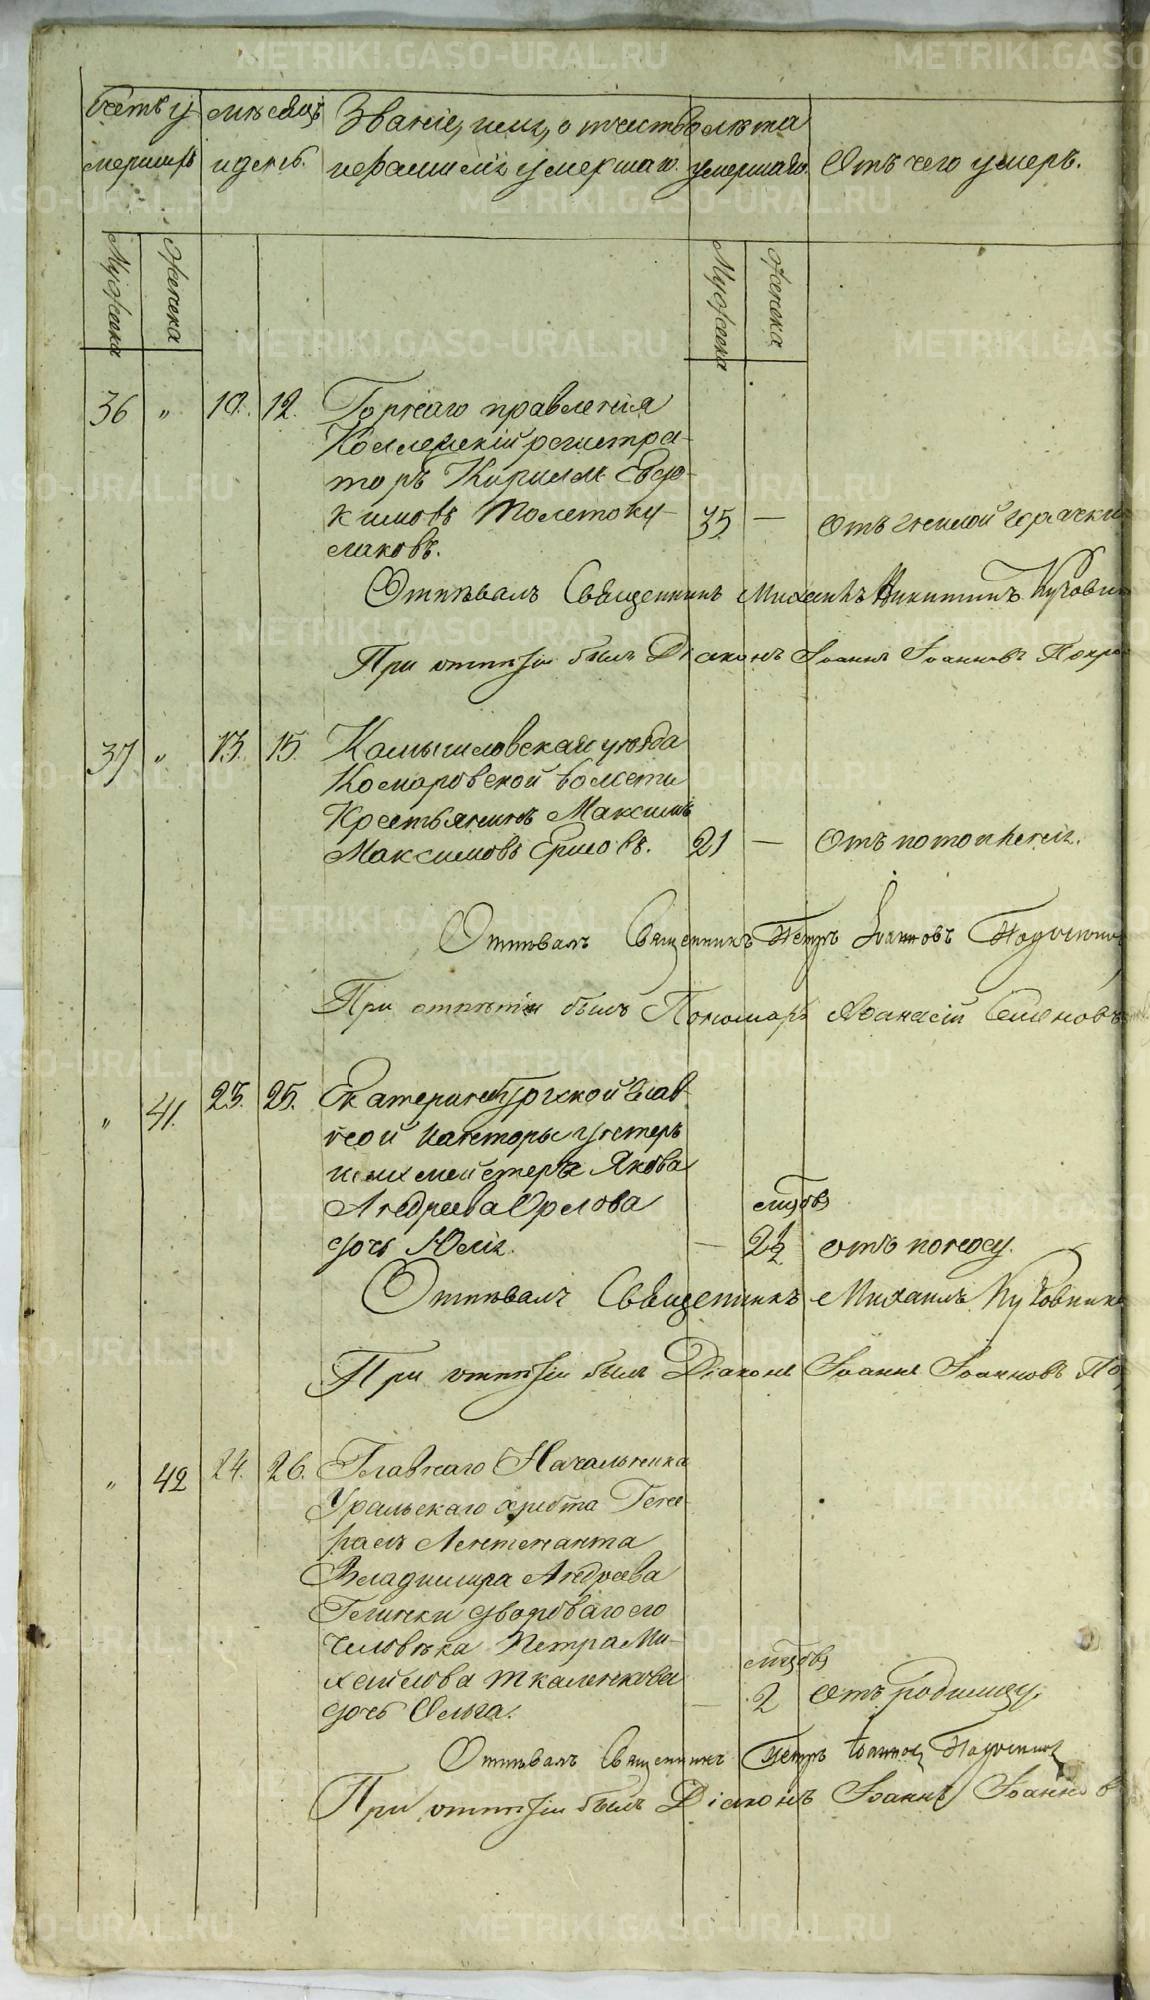 Счетъ у
мершихъ
мѣсяцъ
и день.
Званіе, имя, отчество
и фамилія умершаго.
лѣта
умершаго.
Отъ чего умеръ.
Мужеска
Женска
Мужеска
Женска
36 " 10. 12. Горнаго правленія
Коллежскій регистра-
торъ Кириллъ Евдо-
кимовъ Толстоку-
лаковъ. 35 — Отъ гнилой горячки
Отпѣвалъ Священникъ Михаилъ Никитинъ
При отпѣтіи былъ Діаконъ Іоаннъ Іоанновъ
37 " 13. 15. Камышловскаго уѣзда
Комаровской волости
Крестьянинъ Максимъ
Максимовъ Ершовъ. 21 — Отъ потопленія.
Отпѣвалъ Священникъ Петръ Іоанновъ
При отпѣтіи былъ Пономарь Аѳанасій Семеновъ
" 41. 23. 25. Екатеринбургской Глав-
ной Конторы унтеръ
шихтмейстера Якова
Андреева Орлова
дочь Юлія.
мѣсяцовъ
— 2½ отъ поносу.
Отпѣвалъ Священникъ Михаилъ
При отпѣтіи былъ Діаконъ Іоаннъ Іоанновъ
" 42 24. 26. Главнаго Начальника
Уральскаго хребта Гене-
ралъ Лейтенанта
Владимира Андреева
Глинки двороваго его
человѣка Петра Ми-
хайлова Ткаленкова
дочь Ольга.
мѣсяцовъ
— 2 Отъ родимцу.
Отпѣвалъ Священникъ Петръ Іоанновъ
При отпѣтіи былъ Діаконъ Іоаннъ Іоанновъ
METRIKI.GASO-URAL.RU